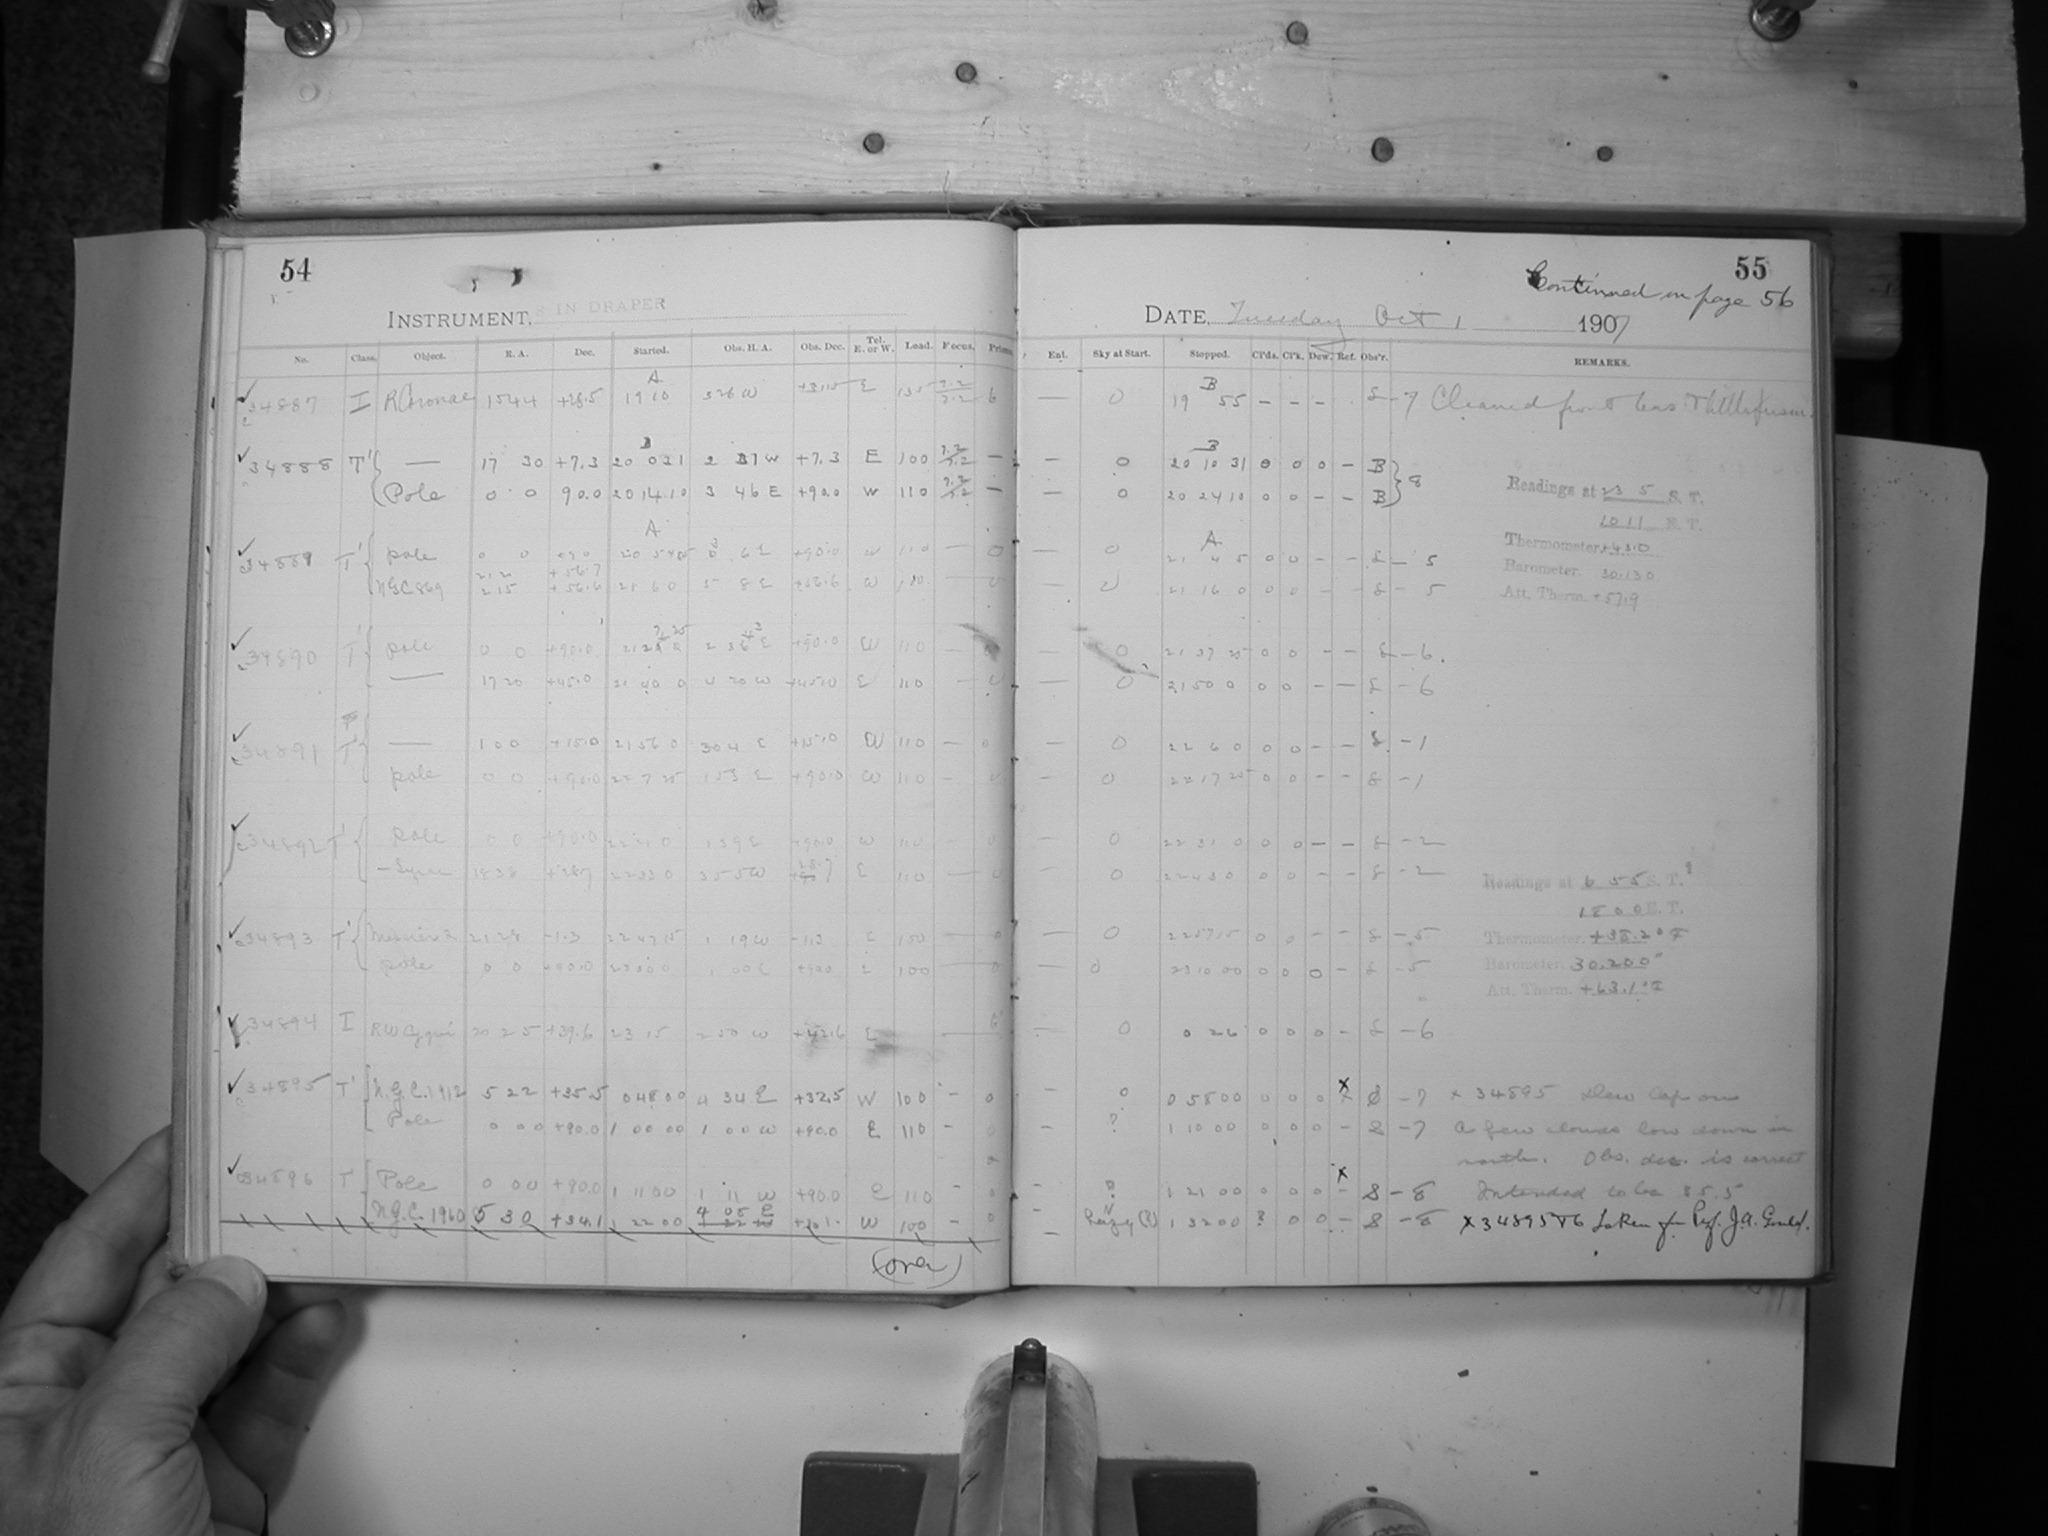 54
INSTRUMENT, 8 IN DRAPER
No. Class. Object. R. A. Dec. Started. Obs. H. A. Obs. Dec. Tel. E. or W. Load. Focus. Prisms
A
34887 I R Coronae 15 44 +28.5 19 10 3 26 W +31.5 E 135 7.2 7.2 6
B
34888 T' — 17 30 +7.3 20 0 31 2 31 W +7.3 E 100 7.2 7.2 —
Pole 0 0 90.0 20 14 10 3 46 E +90.0 W 110 7.2 7.2 —
A
34889 T' pole 0 0 +90 W 110 — 0
NGC 869 2 15 +56.6 21 6 0 5 8 E +56.6 W — 0
34890 T' pole 0 0 +90.0 E +90.0 W 110 —
— 17 20 +45.0 21 40 0 4 20 W +45.0 E 110 — 0
34891 T' — 1 00 +15.0 21 56 0 3 04 E +15.0 W 110 — 0
pole 0 0 +90.0 22 7 25 1 53 E +90.0 W 110 — 0
34892 T' pole 0 0 +90.0 22 21 0 1 39 E +90.0 W 110 0
— Lyrae 18 38 +28.7 22 33 0 3 55 W 28.7 E 110 — 0
34893 T' 21 28 -1.3 22 47 15 1 19 W -1.3 E 100 — 0
pole 0 0 +90.0 23 00 0 1 00 E +90.0 E 100 — 0
34894 I RW Cygni 20 25 +39.6 23 15 2 50 W +42.6 E — 6
34895 T' N.G.C. 1912 5 22 +35.5 0 48 00 4 34 E +32.5 W 100 — 0
Pole 0 00 +90.0 1 00 00 1 00 W +90.0 E 110 — 0
34896 T Pole 0 00 +90.0 1 11 00 1 11 W +90.0 E 110 — 0
N.G.C. 1960 5 30 +34.1 1 22 00 4 08 E W 100 — 0
(over)
55
Continued on page 56
DATE, Tuesday Oct 1 1907
Ent. Sky at Start. Stopped. Cl'ds. Cl'k. Dew. Ref. Obs'r. REMARKS.
B
— 0 19 55 — — — S - 7 Cleaned front lens
B
— 0 20 10 31 0 0 0 — B
— 0 20 24 10 0 0 — — B } 8
Readings at 23 5 S. T.
10 11 E. T.
Thermometer. +43.0
Barometer. 30.130
Att. Therm. +57.9
A
— 0 21 4 5 0 0 — — S - 5
— 0 21 16 0 0 0 — — S - 5
— 0 21 37 25 0 0 — — S - 6.
— 0 21 50 0 0 0 — — S - 6
— 0 22 6 0 0 0 — — S - 1
— 0 22 17 25 0 0 — — S - 1
— 0 22 31 0 0 0 — — S - 2
0 22 43 0 0 0 — — S - 2
Readings at 6 55 S. T.
18 00 E. T.
Thermometer. +38.2° F
Barometer. 30.200"
Att. Therm. +63.1° F
— 0 22 57 15 0 0 — — S - 5
— 0 23 10 00 0 0 0 — S - 5
— 0 0 26 0 0 0 — S - 6
— 0 0 58 00 0 0 0 x S - 7 x 34895 Dew Cap on
— ? 1 10 00 0 0 0 — S - 7 A few clouds low down in
north. Obs. dec. is correct
— 1 21 00 0 0 0 x S - 8 Intended to be 35.5
— Hazy (?) 1 32 00 ? 0 0 — S - 8 x 34895+6 taken for Prof. J.A. Gould.